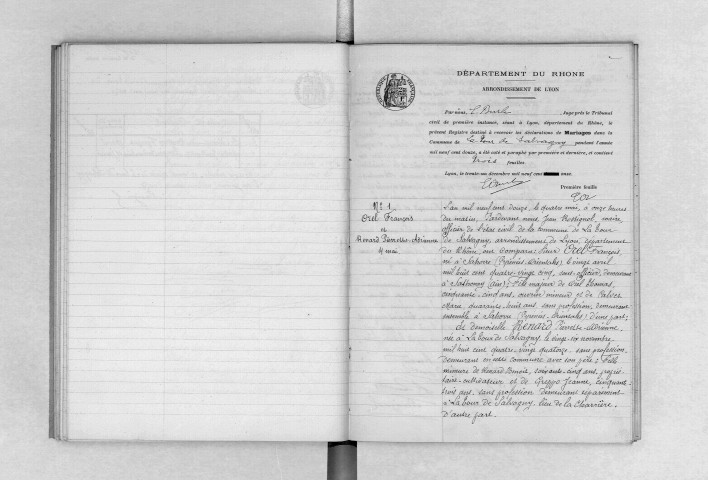 DÉPARTEMENT DU RHONE
ARRONDISSEMENT DE LYON
Par nous, Juge près le Tribunal
civil de première instance, séant à Lyon, département du Rhône, le
présent Registre destiné à recevoir les déclarations de Mariages dans la
Commune de La Tour de Salvagny pendant l'année
mil neuf cent douze, a été coté et paraphé par première et dernière, et contient
trois feuilles.
Lyon, le trente-un décembre mil neuf cent onze.
Première feuille
N° 1
Orel François
et
Renard Pierrette-Adrienne
4 mai
L'an mil neuf cent douze, le quatre mai, à onze heures
du matin, Pardevant nous Jean Rossignol, maire,
officier de l'état civil de la commune de La Tour
de Salvagny, arrondissement de Lyon, département
du Rhône, ont comparu Sieur Orel François,
né à (Pyrénées-Orientales) le vingt avril
mil huit cent quatre-vingt cinq, sous-officier, demeurant
à Sathonay (Ain), Fils majeur de Orel Thomas,
cinquante-cinq ans, ouvrier mineur et de
Marie quarante-huit ans, sans profession, demeurant
ensemble à (Pyrénées-Orientales) d'une part;
Et demoiselle Renard Pierrette-Adrienne,
née à La Tour de Salvagny, le vingt-six novembre
mil huit cent quatre-vingt quatorze, sans profession,
demeurant en cette commune avec son père; Fille
mineure de Renard Benoît, soixante-cinq ans, proprié-
taire-cultivateur et de Greppo Jeanne, cinquante-
trois ans, sans profession demeurant séparément
à La Tour de Salvagny, lieu de la Charrière,
D'autre part.